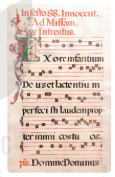 In Festo SS. Innocent.
Ad Missam.
Introitus.
EX ore infantium
Deus et lactentium
perfecisti laudem prop
ter inimicos tu os.
ps. Domine Dominus